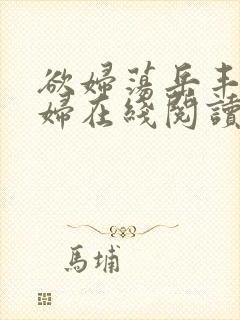 欲婦蕩岳丰
婦在綫閱讀
馬埔